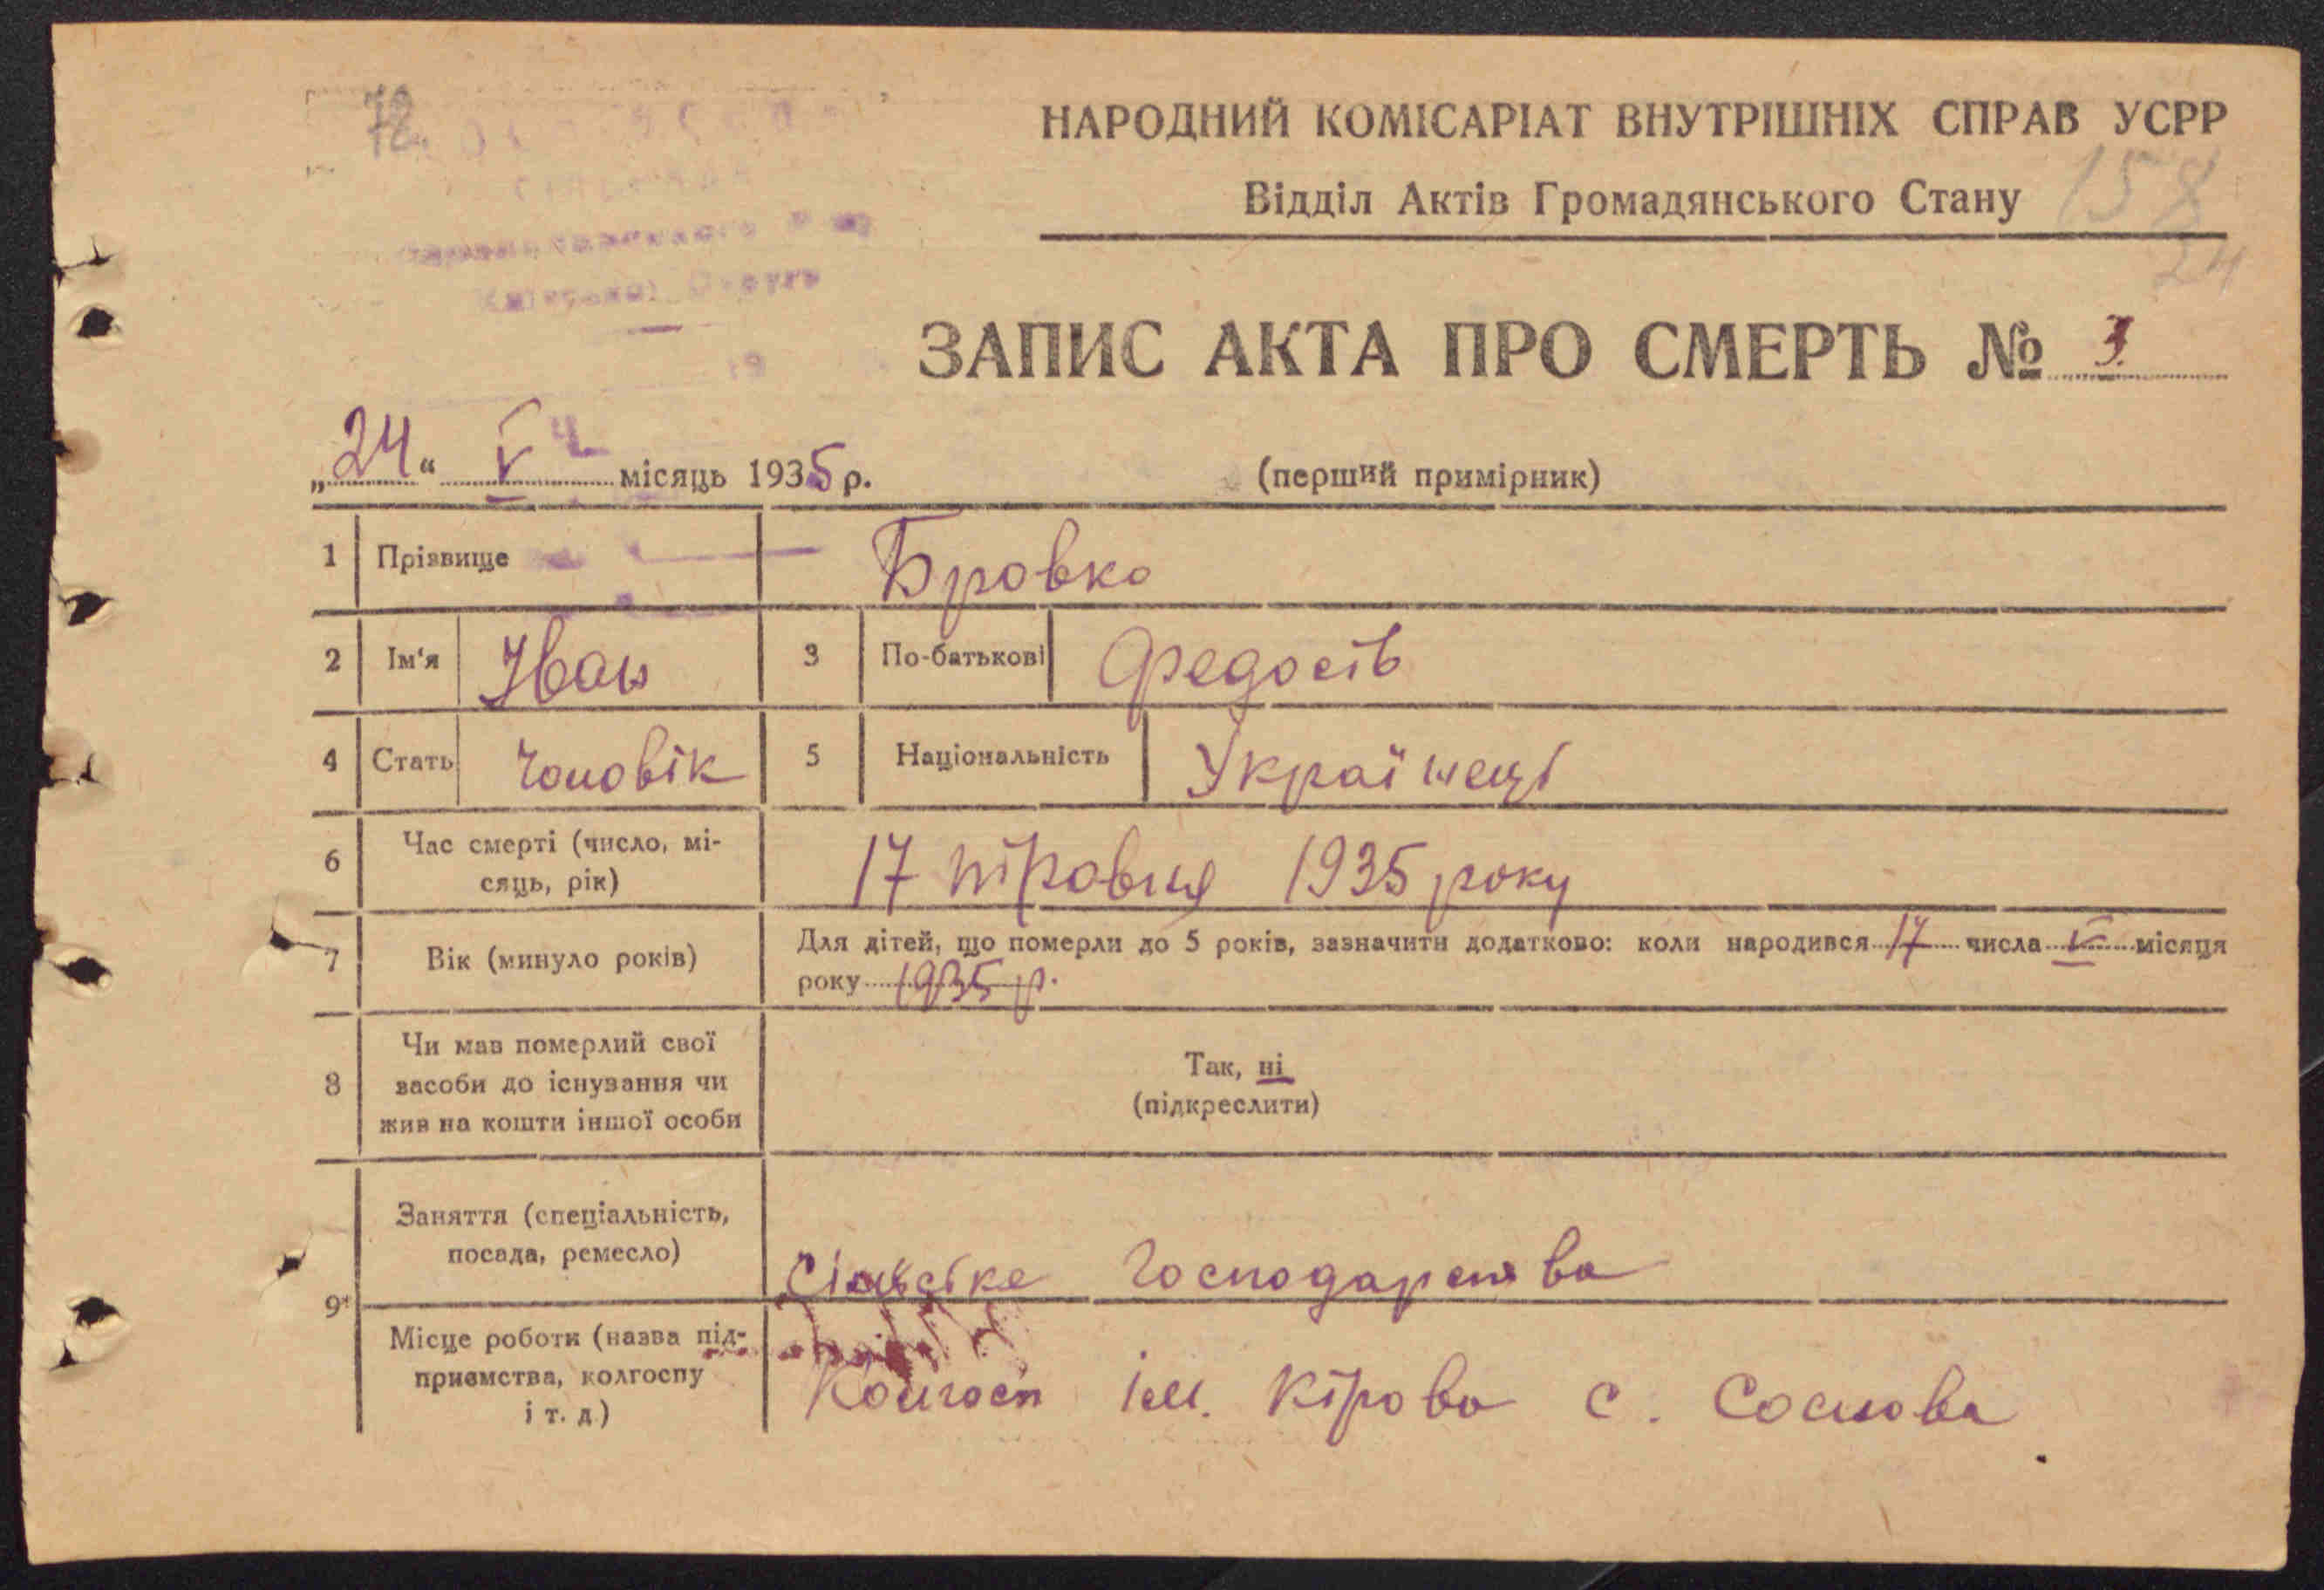 72
НАРОДНИЙ КОМІСАРІАТ ВНУТРІШНІХ СПРАВ УСРР
Відділ Актів Громадянського Стану
158
24
ЗАПИС АКТА ПРО СМЕРТЬ № 3.
„24“ V місяць 1935 р.
(перший примірник)
1 Прізвище Бровко
2 Ім'я Іван 3 По-батькові Федосів
4 Стать Чоловік 5 Національність Українець
6 Час смерті (число, мі-
сяць, рік)
17 травня 1935 року
7 Вік (минуло років)
Для дітей, що померли до 5 років, зазначити додатково: коли народився 17 числа V місяця
року 1935 р.
8 Чи мав померлий свої
засоби до існування чи
жив на кошти іншої особи
Так, ні
(підкреслити)
9 Заняття (спеціальність,
посада, ремесло)
Сільське Господарства
Місце роботи (назва під-
приємства, колгоспу
і т. д.)
Колгосп ім. Кірова с. Соснова